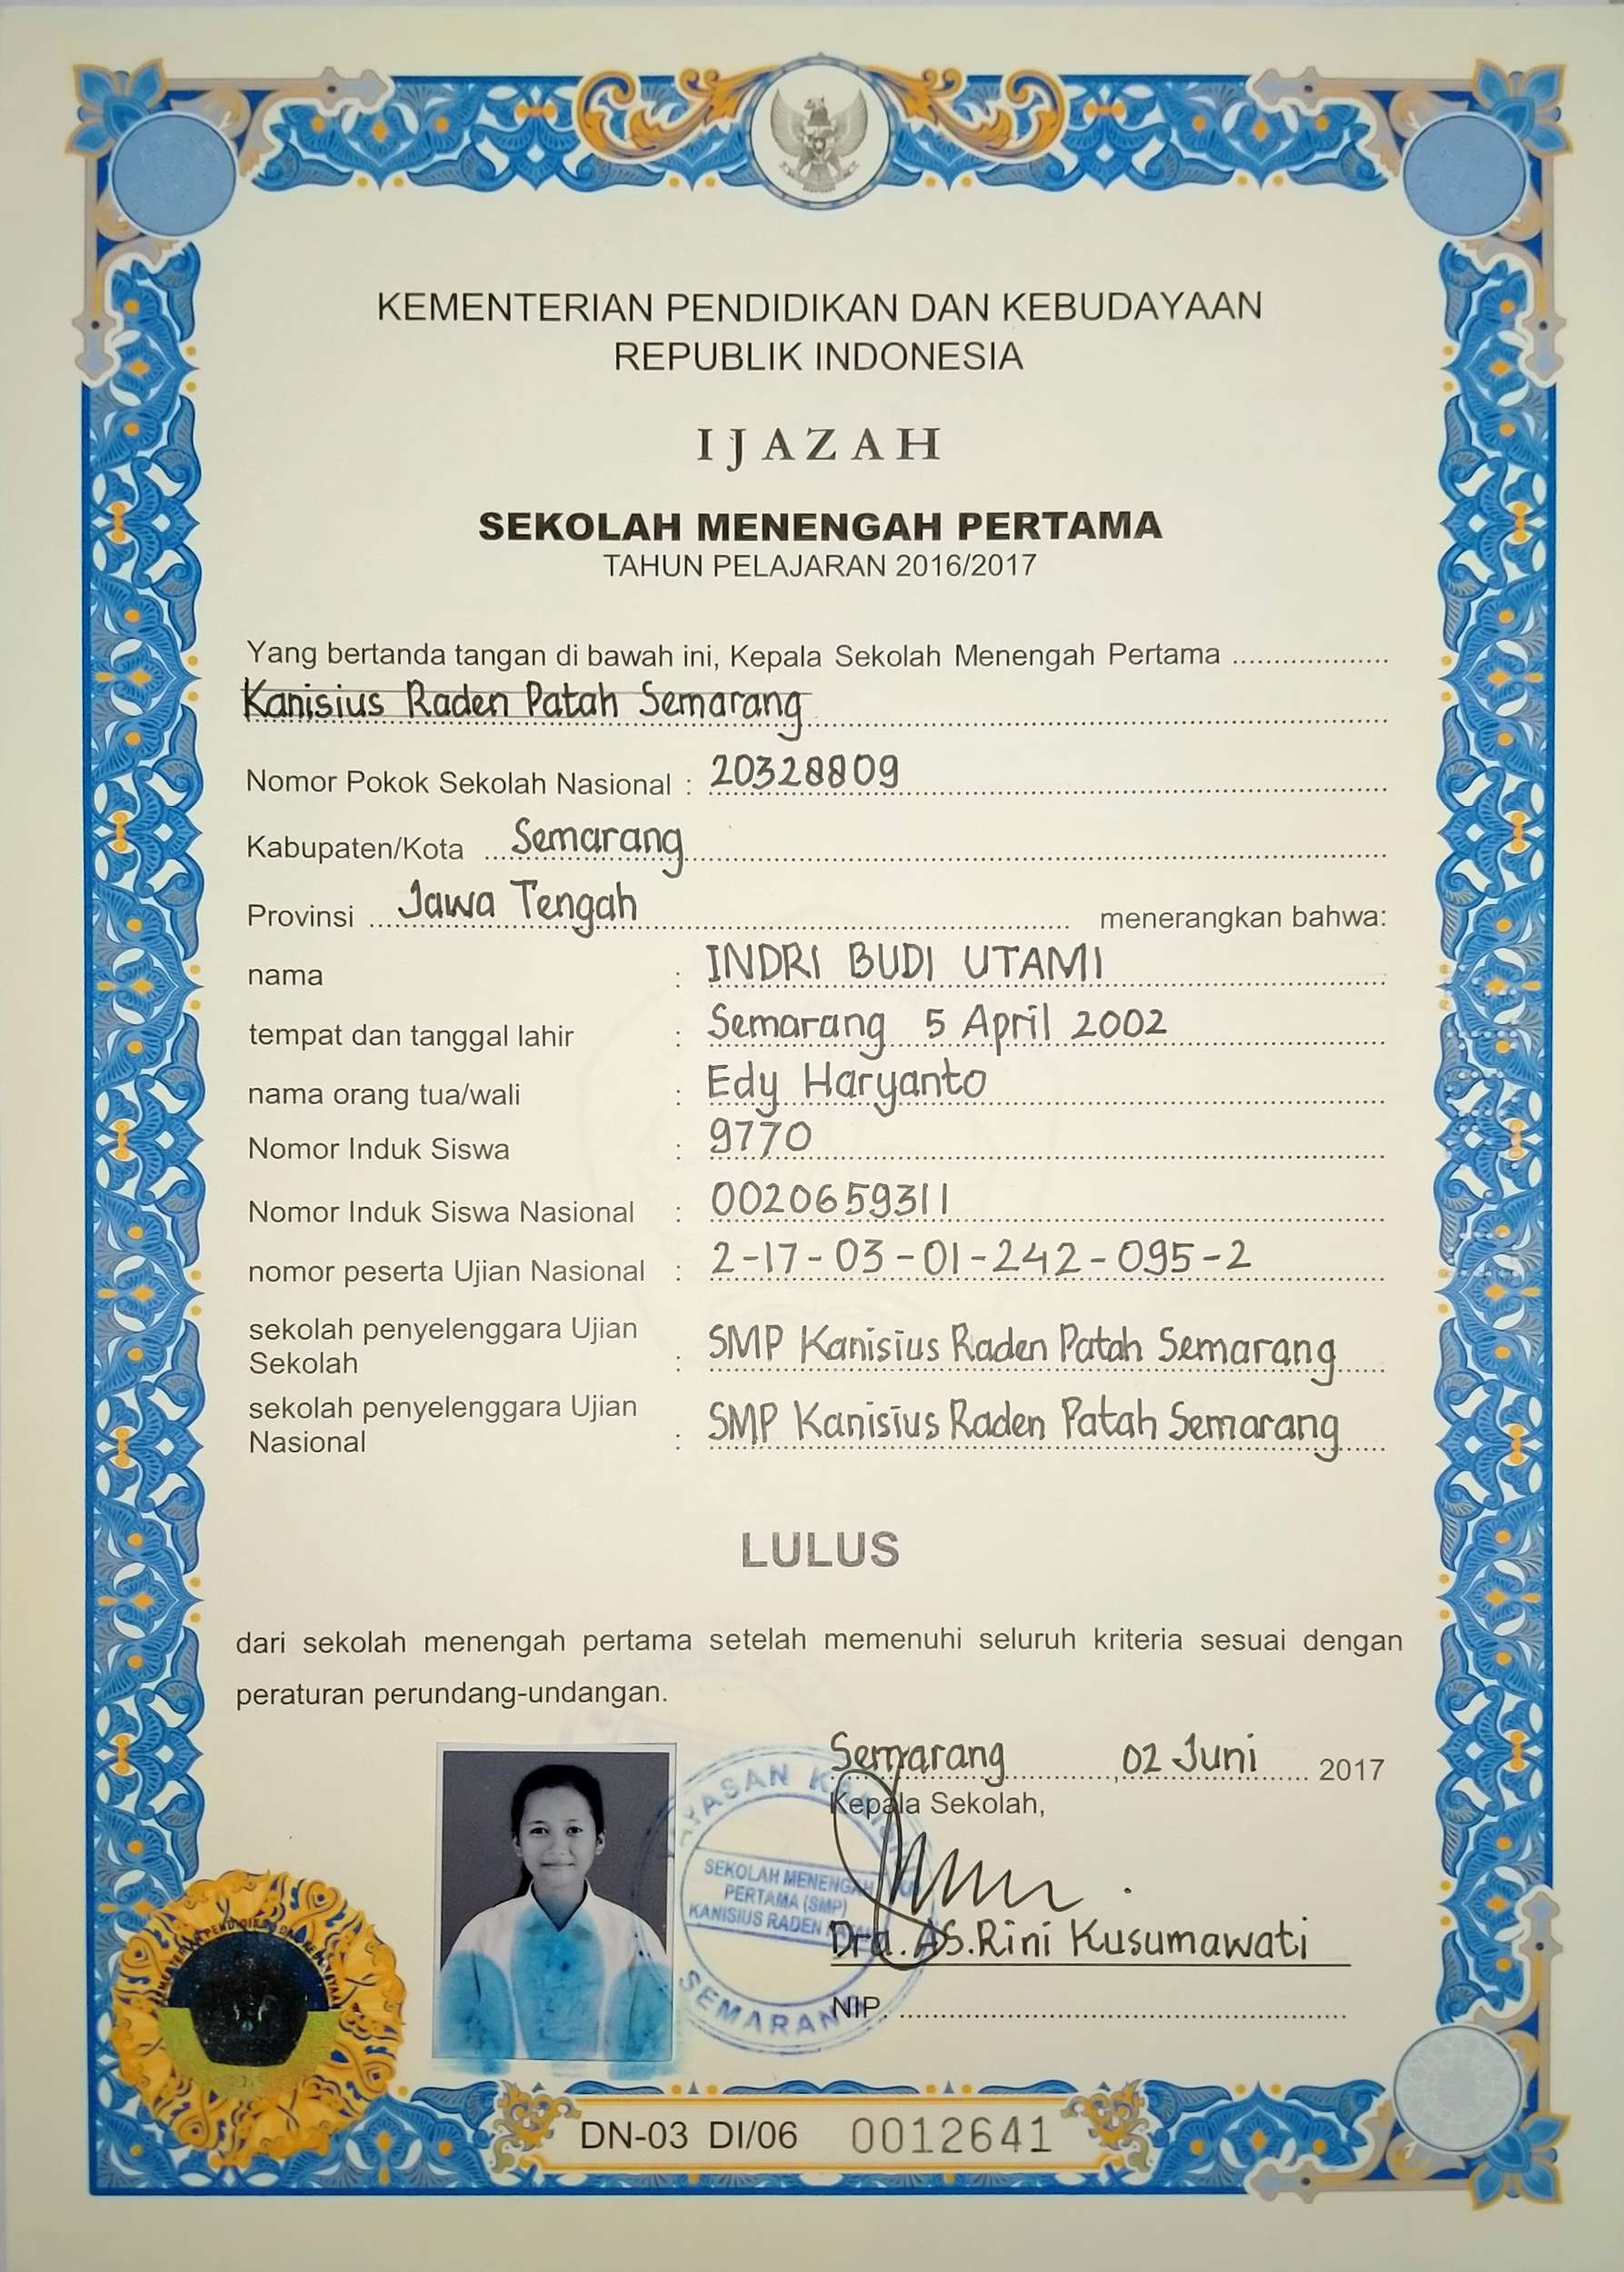 KEMENTERIAN PENDIDIKAN DAN KEBUDAYAAN
REPUBLIK INDONESIA
IJAZAH
SEKOLAH MENENGAH PERTAMA
TAHUN PELAJARAN 2016/2017
Yang bertanda tangan di bawah ini, Kepala Sekolah Menengah Pertama
Kanisius Raden Patah Semarang
Nomor Pokok Sekolah Nasional : 20328809
Kabupaten/Kota Semarang
Provinsi Jawa Tengah menerangkan bahwa:
nama : INDRI BUDI UTAMI
tempat dan tanggal lahir : Semarang 5 April 2002
nama orang tua/wali : Edy Haryanto
Nomor Induk Siswa : 9770
Nomor Induk Siswa Nasional : 0020659311
nomor peserta Ujian Nasional : 2-17-03-01-242-095-2
sekolah penyelenggara Ujian
Sekolah : SMP Kanisius Raden Patah Semarang
sekolah penyelenggara Ujian
Nasional : SMP Kanisius Raden Patah Semarang
LULUS
dari sekolah menengah pertama setelah memenuhi seluruh kriteria sesuai dengan
peraturan perundang-undangan.
Semarang, 02 Juni 2017
Kepala Sekolah,
YASAN
SEKOLAH MENENGAH
PERTAMA (SMP)
KANISIUS RADEN
SEMARANG
Dra. AS. Rini Kusumawati
NIP.
DN-03 DI/06 0012641